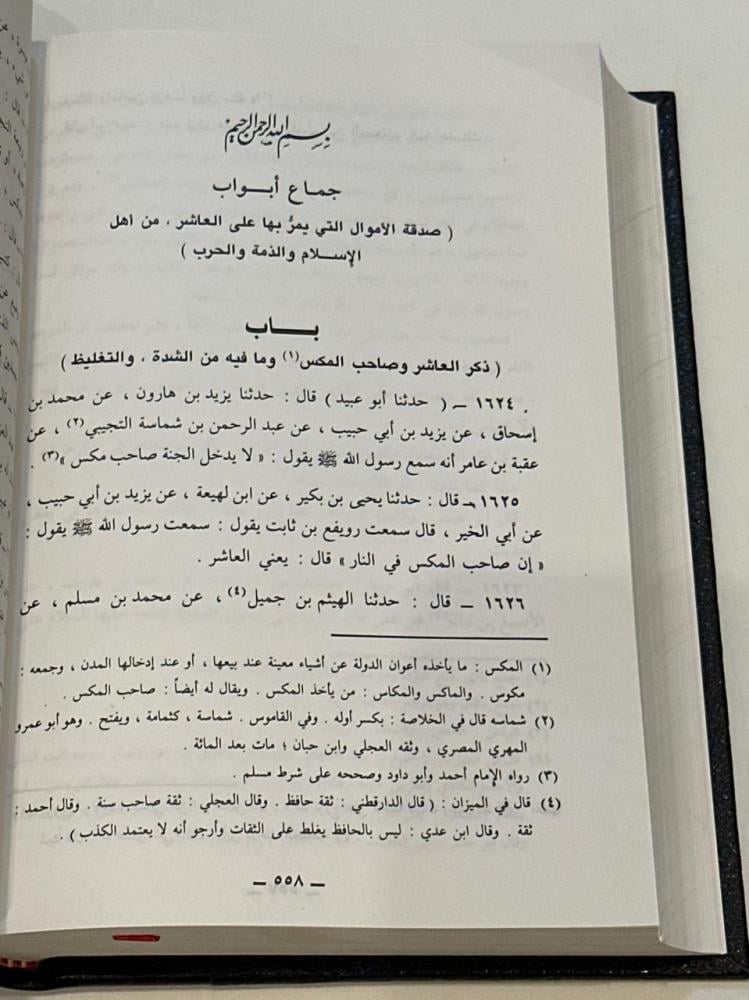 بسم الله الرحمن الرحيم
جماع أبواب
( صدقة الأموال التي يمرُّ بها على العاشر ، من أهل
الإسلام والذمة والحرب )
باب
( ذكر العاشر وصاحب المكس (١) وما فيه من الشدة ، والتغليظ )
١٦٢٤ ـ ( حدثنا أبو عبيد ) قال : حدثنا يزيد بن هارون ، عن محمد بن
إسحاق ، عن يزيد بن أبي حبيب ، عن عبد الرحمن بن شماسة التجيبي (٢) ، عن
عقبة بن عامر أنه سمع رسول الله ﷺ يقول : « لا يدخل الجنة صاحب مكس » (٣) .
١٦٢٥ ـ قال : حدثنا يحيى بن بكير ، عن ابن لهيعة ، عن يزيد بن أبي حبيب ،
عن أبي الخير ، قال سمعت رويفع بن ثابت يقول : سمعت رسول الله ﷺ يقول :
« إن صاحب المكس في النار » قال : يعني العاشر .
١٦٢٦ ـ قال : حدثنا الهيثم بن جميل (٤) ، عن محمد بن مسلم ، عن
(١) المكس : ما يأخذه أعوان الدولة عن أشياء معينة عند بيعها ، أو عند إدخالها المدن ، وجمعه :
مكوس . والماكس والمكاس : من يأخذ المكس . ويقال له أيضاً : صاحب المكس .
(٢) شماسه قال في الخلاصة : بكسر أوله . وفي القاموس . شماسة ، كثمامة ، ويفتح . وهو أبو عمرو
المهري المصري ، وثقه العجلي وابن حبان ؛ مات بعد المائة .
(٣) رواه الإمام أحمد وأبو داود وصححه على شرط مسلم .
(٤) قال في الميزان : ( قال الدارقطني : ثقة حافظ . وقال العجلي : ثقة صاحب سنة . وقال أحمد :
ثقة . وقال ابن عدي : ليس بالحافظ يغلط على الثقات وأرجو أنه لا يعتمد الكذب ) .
ـ ٥٥٨ ـ